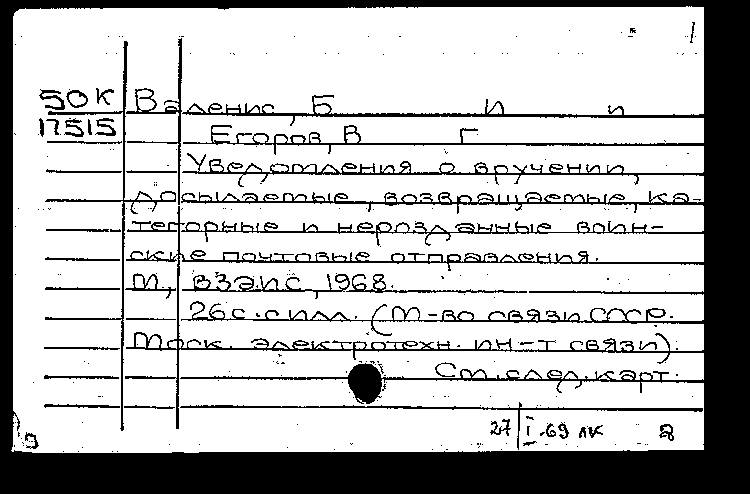 1
50К Валенис, Б И п
17515 Егоров, В Г
Уведомления о вручении,
досылаемые, возвращаемые, ка-
тегорные и нерозданные воин-
ские почтовые отправления.
М, ВЗЭИС, 1968.
26с. с илл. (М-во связи СССР.
Моск. электротехн. ин-т связи).
См. след. карт.
27 I -69 лк 2